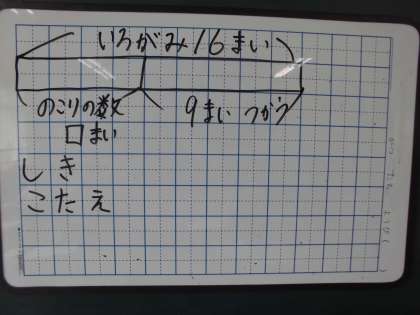 いろがみ16まい
のこりの数
9まいつかう
□まい
しき
こたえ